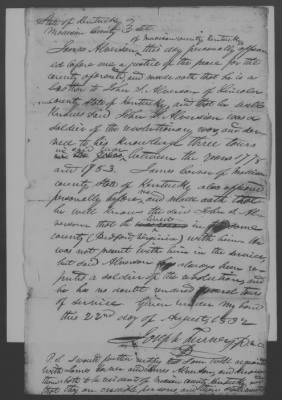 State of Kentucky
Madison County
of Madison county Kentucky
James this day personally appear
ed before me a justice of the peace for the
county aforesaid, and made oath that he is a
brother to John of Lincoln
county State of Kentucky and that he well
knows said John was a
soldier of the revolutionary war and ser
ved to his knowledge three tours
in said war
between the years 1778
and 1783. James of Madison
county State of Kentucky also appeared
personally before me and made oath that
he well knows the said John
that he lived in the same
county (Bedford Virginia) with him that he
was not present with him in the service,
but said always been re
puted a soldier of the revolution, and
he has no doubt rendered several tours
of service Given under my hand
this 22nd day of August 1832
Joseph Turner
P.S. I would further certify that I am well acquainted
with James and James and know
them both to be residents of Madison county Kentucky and
that they are credible persons and their statements